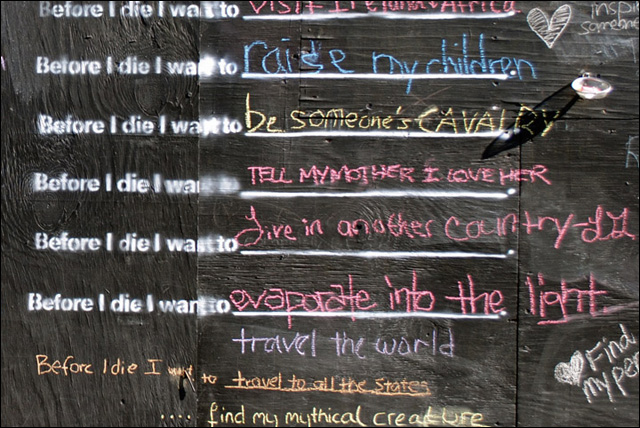 Before I die I want to visit Ireland & Africa
inspi
someone
Before I die I want to raise my children.
Before I die I want to be someone's CAVALRY
Before I die I want to TELL MY MOTHER I LOVE HER
Before I die I want to Live in another country-
Before I die I want to evaporate into the light
travel the world
Before I die I want to travel to all the states
Find
my pe
.... find my mythical creature